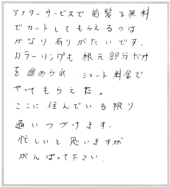 アフターサービスで前髪を無料
でカットしてもらえるのは
かなり有りがたいです。
カラーリングも根元部分だけ
を進められ、ショート料金で
やってもらえた。
ここに住んでいる限り
通いつづけます。
忙しいと思いますが
がんばって下さい